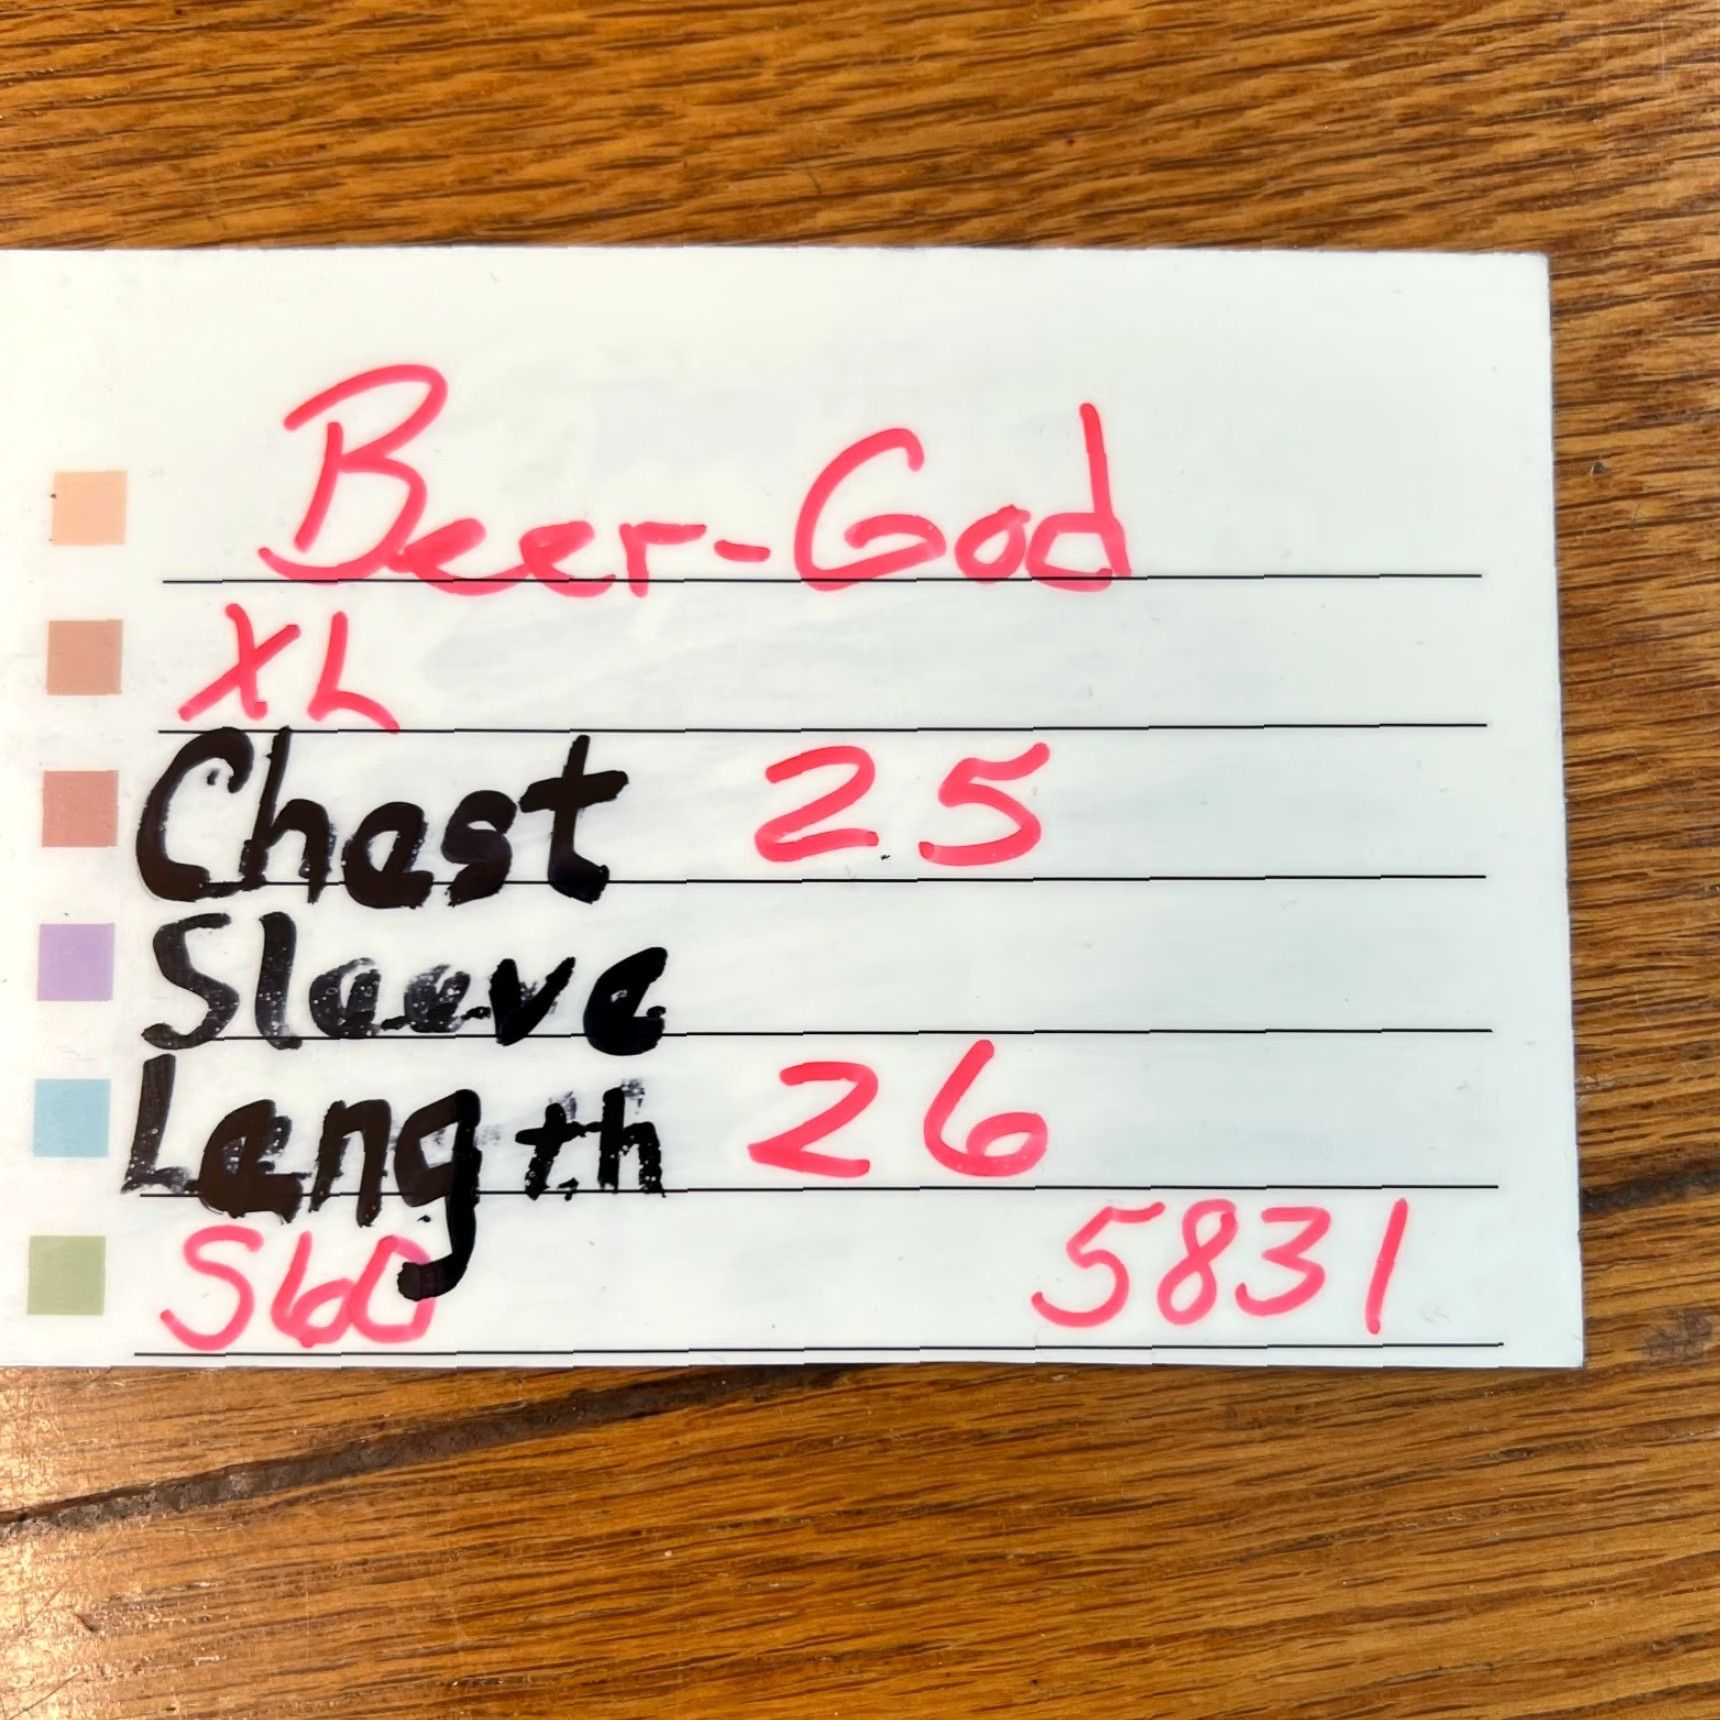 Beer-God
XL
Chest 25
Sleeve
Length 26
5831